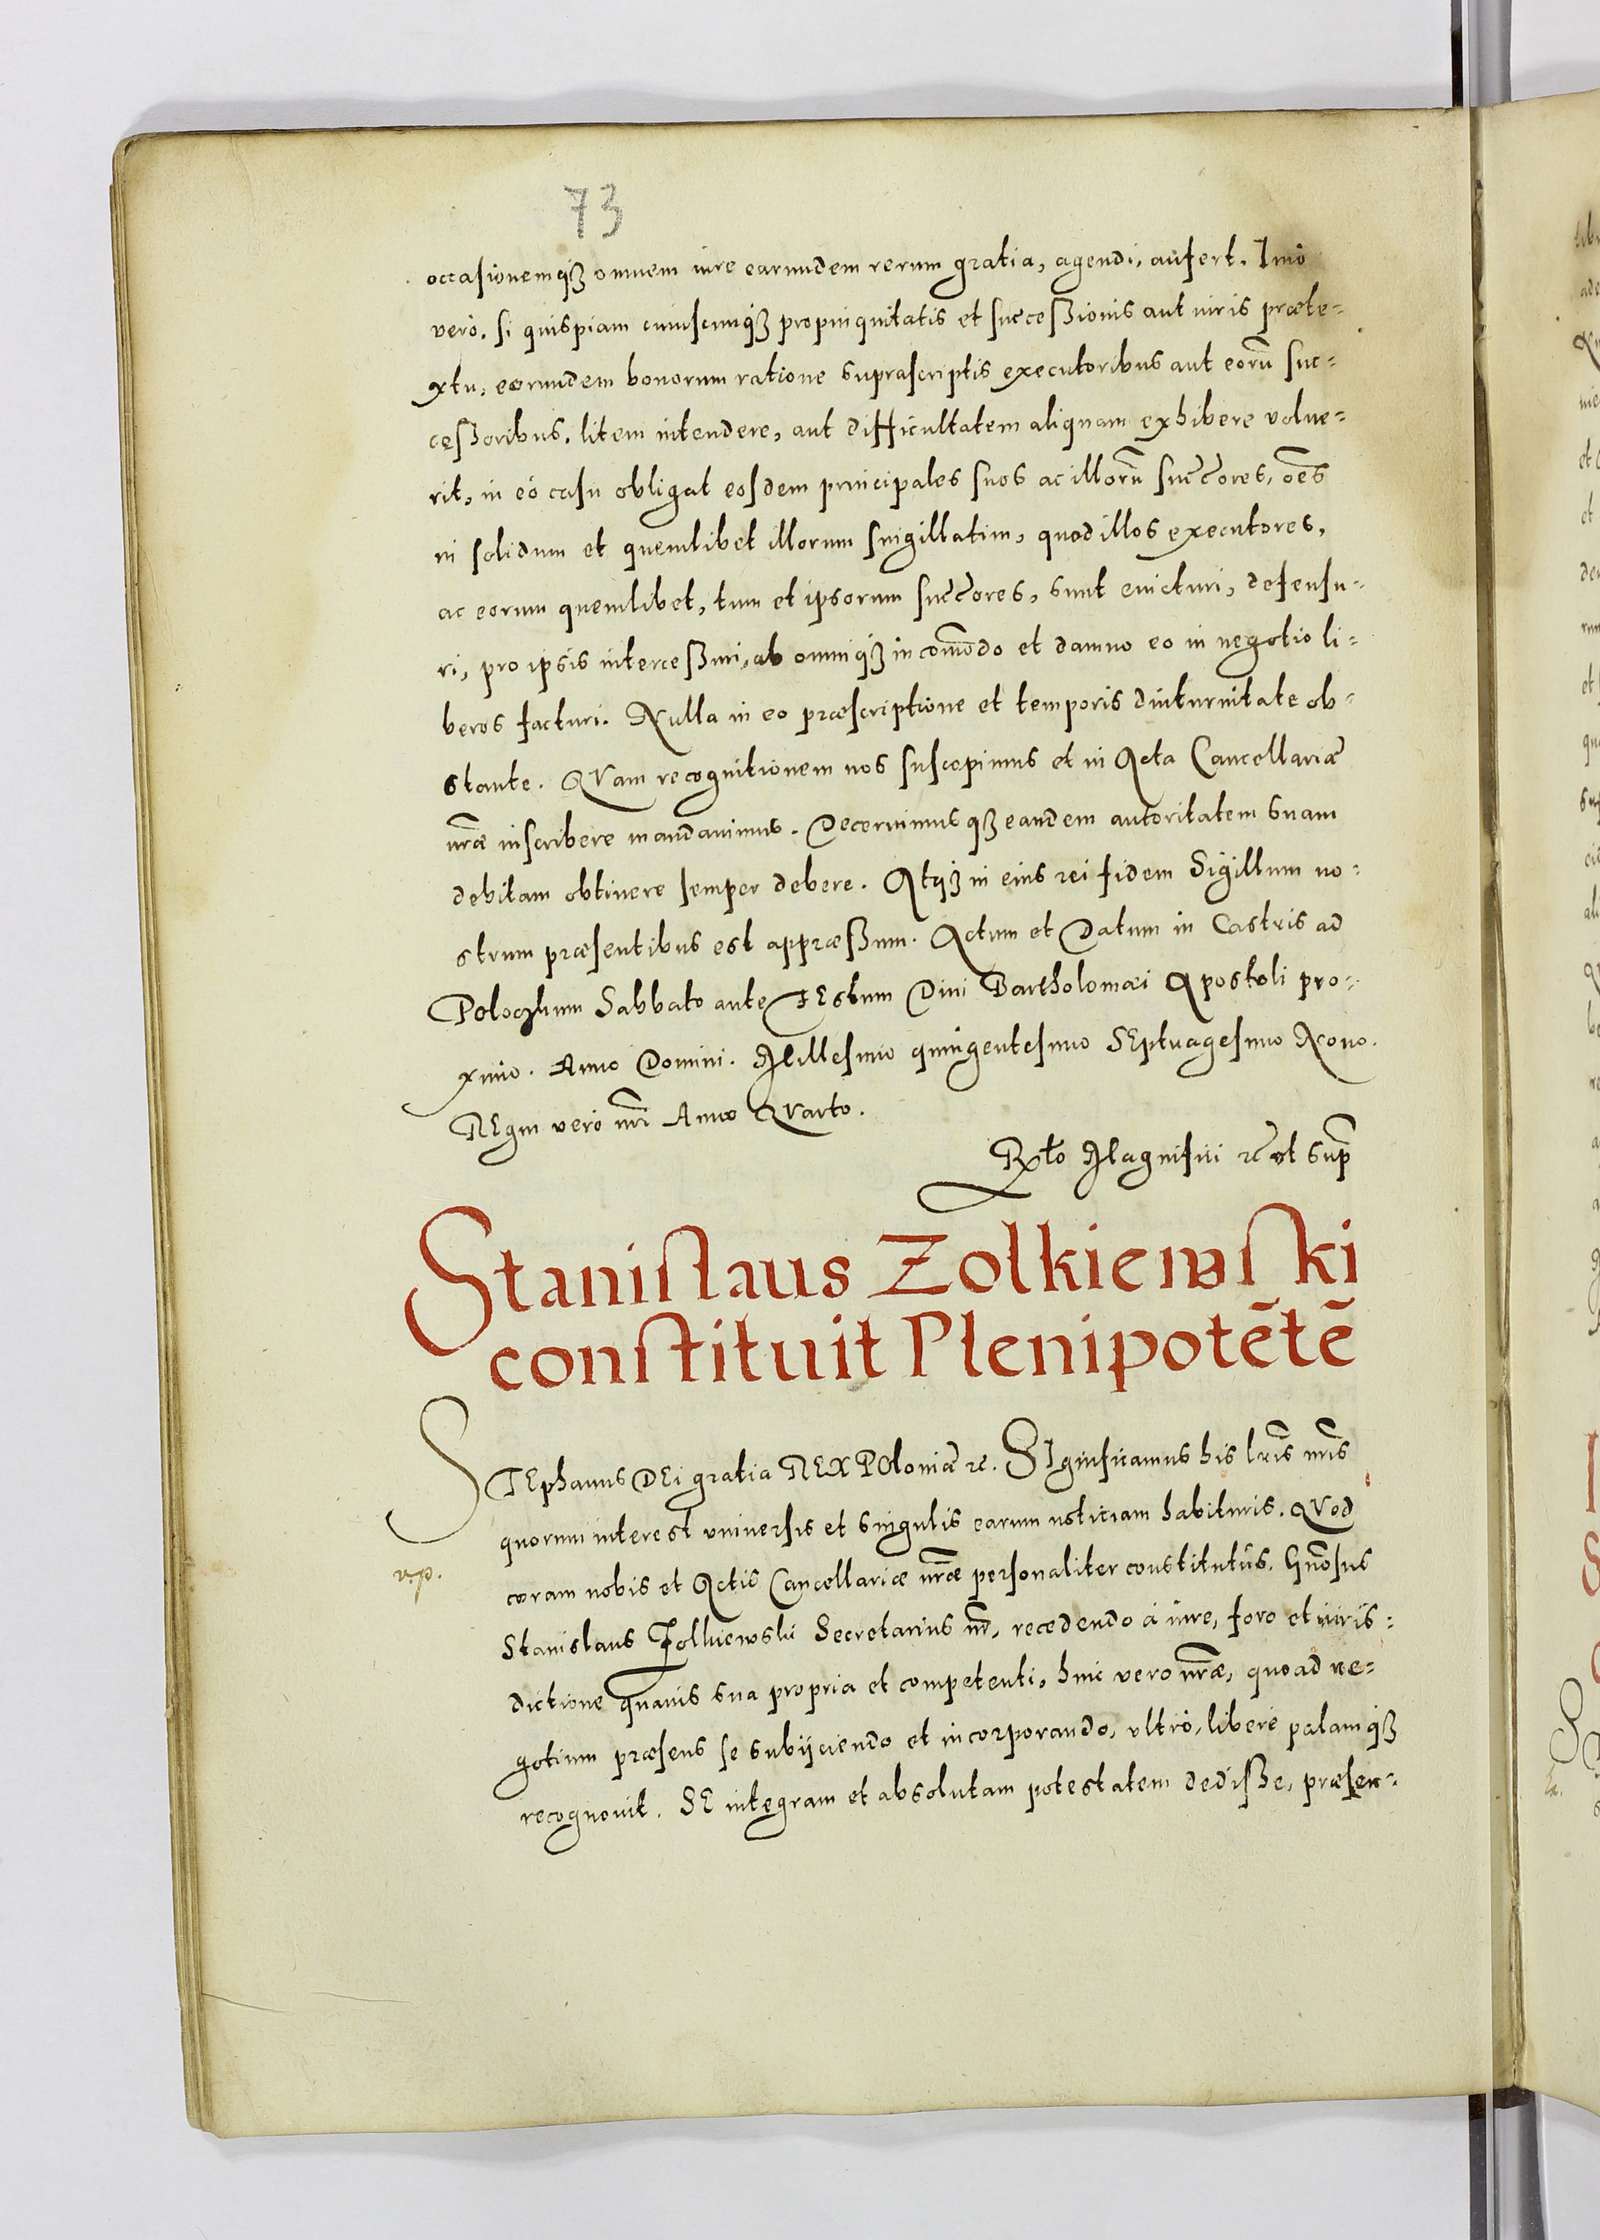 73
occasionemqȝ omnem iure earundem rerum gratia, agendi, aufert. Imò
verò. si quispiam cuiuscunqȝ propinquitatis et successionis aut iuris præte-
xtu, eorundem bonorum ratione suprascriptis executoribus aut eorū suc-
cessoribus. litem intendere, aut difficultatem aliquam exhibere volue-
rit, in eó casu obligat eosdem principales suos ac illorū succores, oēs
in solidum et quemlibet illorum singillatim, quod illos executores,
ac eorum quemlibet, tum et ipsorum succores, sunt euicturi, defensu-
ri, pro ipsis intercessuri, ab omniqȝ incōmodo et damno eo in negotio li-
beros facturi. Nulla in eo præscriptione et temporis diuturnitate ob-
stante. QVam recognitionem nos suscepimus et in Acta Cancellariæ
nr̄æ inscribere mandauimus. Decernimusqȝ eandem autoritatem suam
debitam obtinere semper debere. Atqȝ in eius rei fidem Sigillum no-
strum præsentibus est appræssum. Actum et Datum in Castris ad
Poloczkum Sabbato ante FEstum Diui Bartholomæi Apostoli pro-
ximo. Anno Domini. Millesimo quingentesimo SEptuagesimo Nono.
REgni verò nr̄i Anno QVarto.
Rtō Magnifici rc̄ ut sup̄
Stanislaus Zolkiewski
constituit Plenipotētē
STEphanus DEi gratia REX POloniæ rc. SIgnificamus his lr̄is nr̄is
quorum interest vniuersis et singulis earum notitiam habituris. QVod
v.p.
coram nobis et Actis Cancellariæ nr̄æ personaliter constitutus. Gn̄osus
Stanislaus Zolkiewski Secretarius nr̄, recedendo à iure, foro et iuris-
dictione quauis sua propria et competenti, huic vero nr̄æ, quoad ne-
gotium præsens se subijciendo et incorporando, vltrò, liberè palamqȝ
recognouit. SE integram et absolutam potestatem dedisse, præsen-